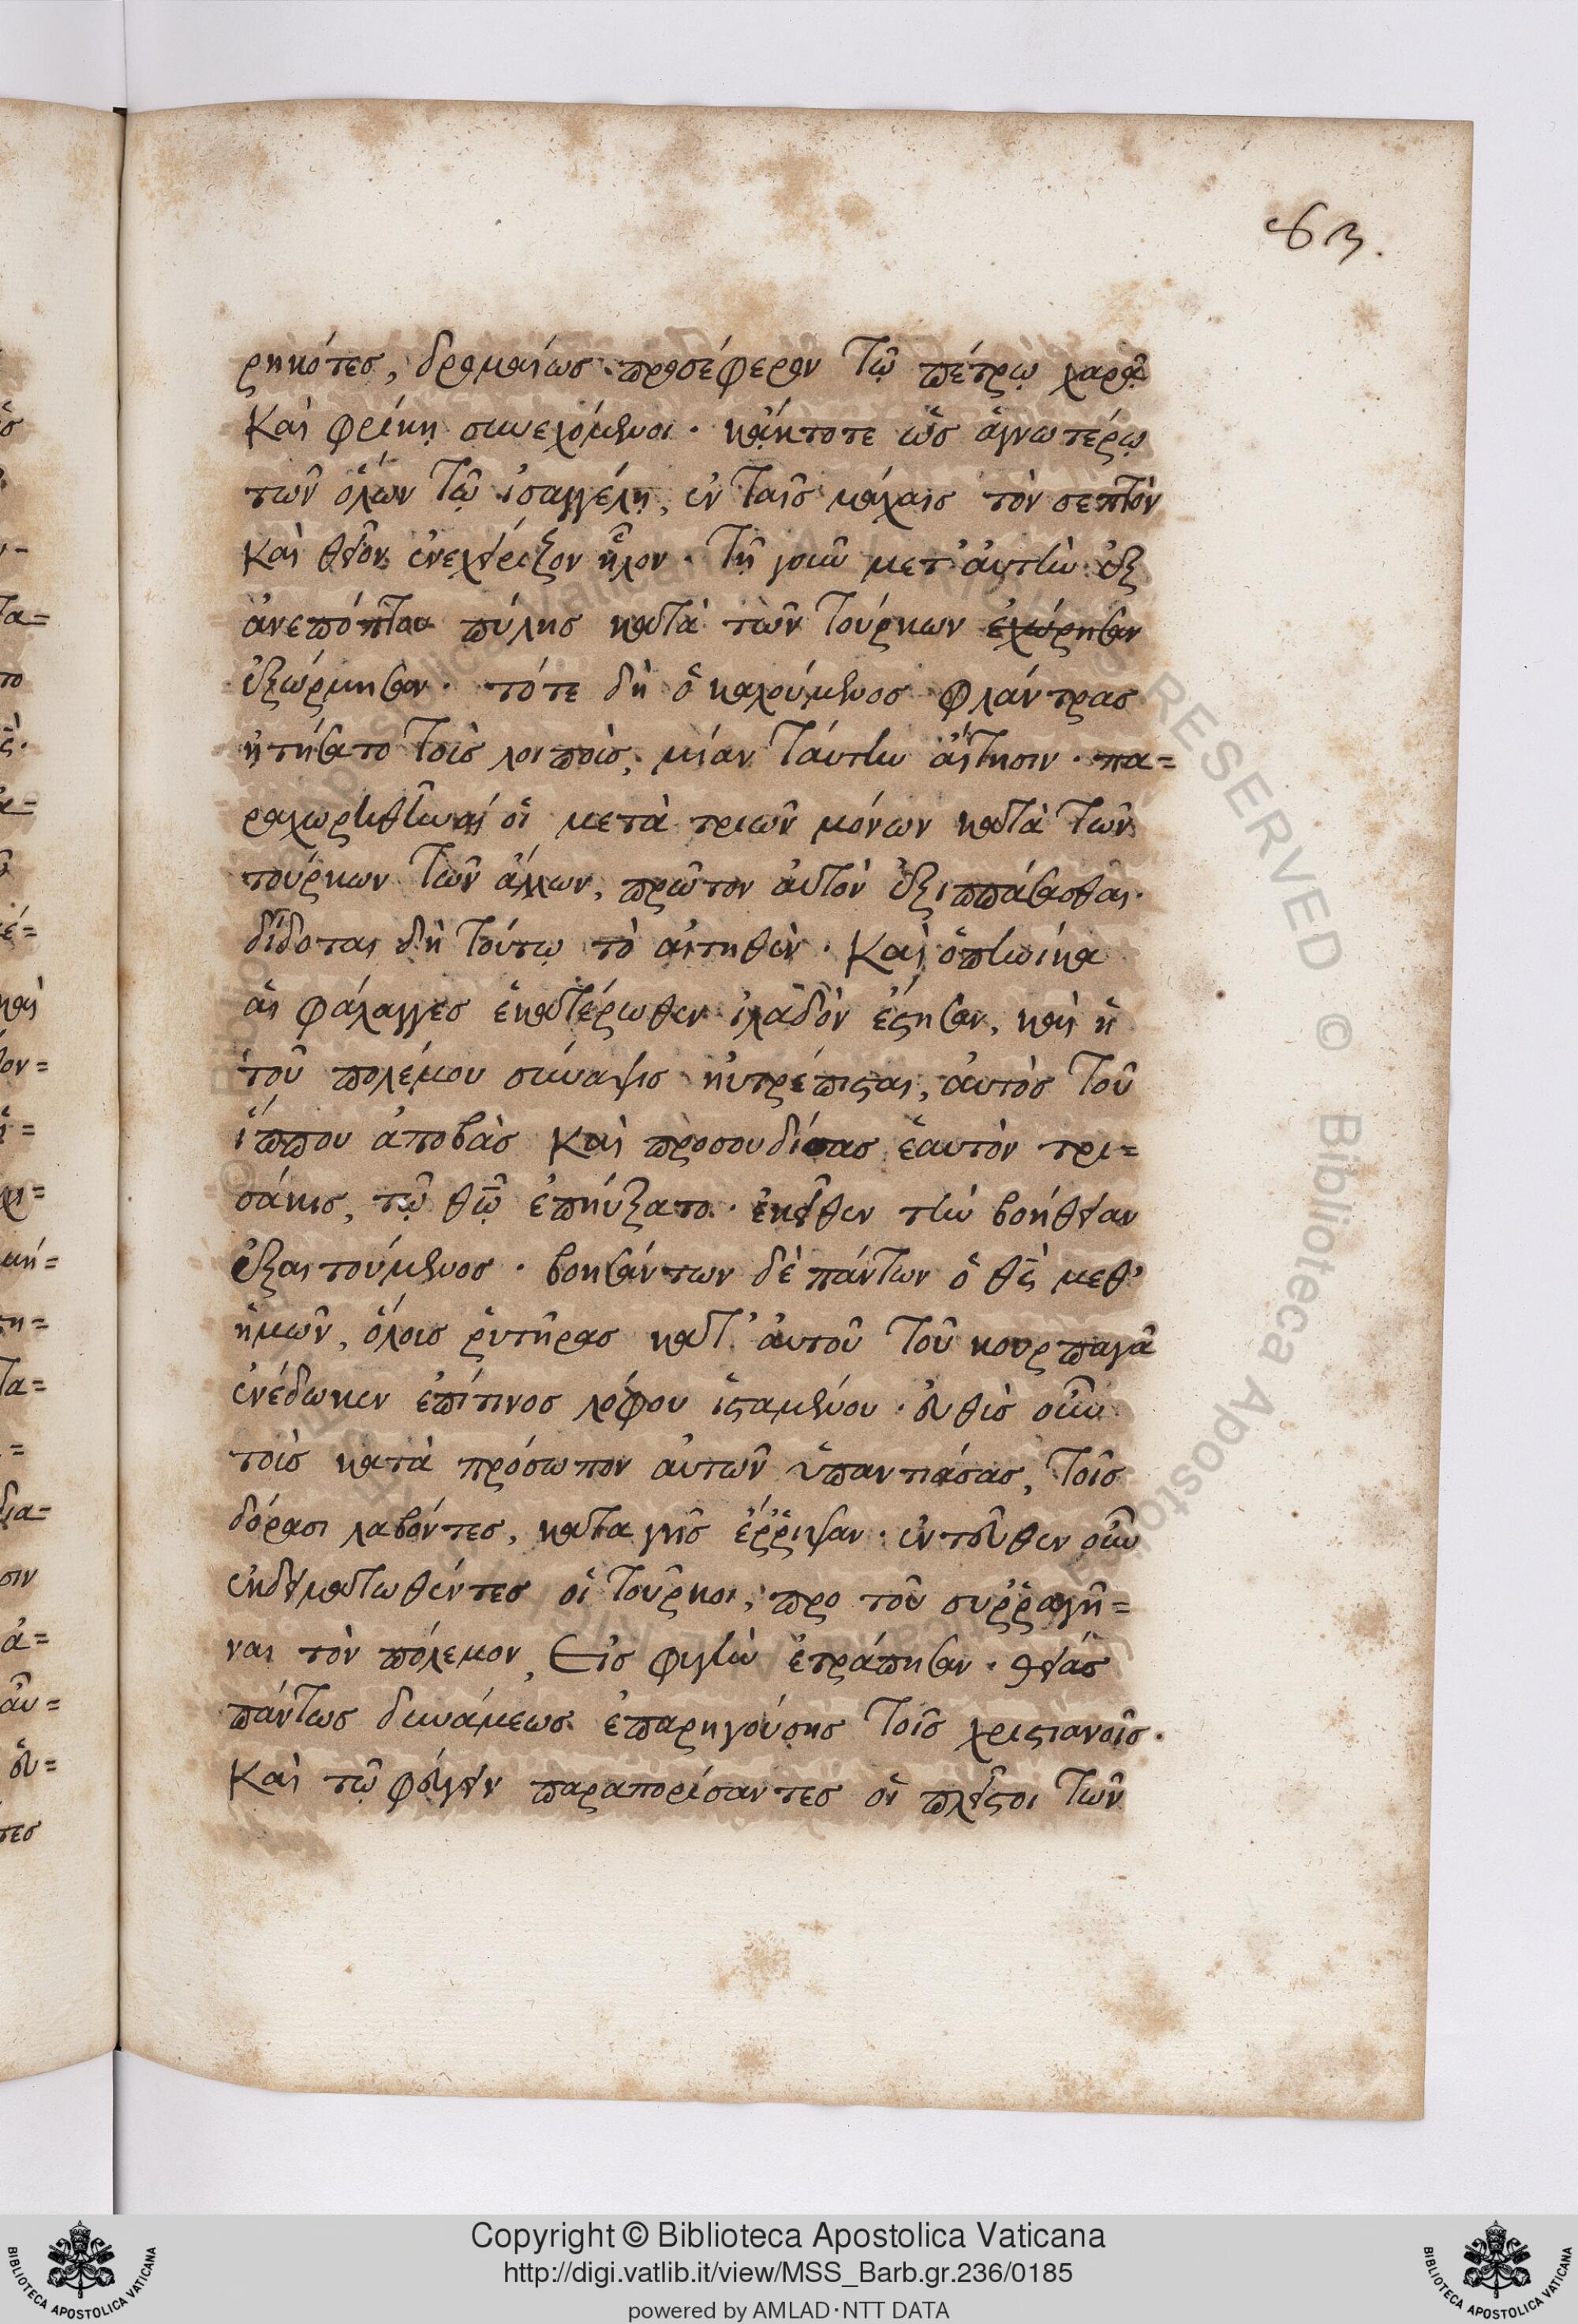 63.
ρηκότες, δρομαίως προσέφερον τῷ πέτρῳ χαρᾷ
Καὶ φρίκῃ συνεχόμενοι. κᾄκτοτε ὡς ἁγνωτέρῳ
τῶν ὅλων τῷ ἰσαγγέλῃ, ἐν ταῖς μάχαις τὸν σεπτὸν
καὶ θεῖον ἐνεχείριζον ἧλον. τῇ γοῦν μετ' αὐτὴν ἐξ
ἀνεπόπτου πύλης κατὰ τῶν τούρκων ἐχώρησαν
ἐξώρμησαν. τότε δὴ ὁ καλούμενος φλάντρας
ᾐτήσατο τοῖς λοιποῖς, μίαν ταύτην αἴτησιν. πα=
ραχωρηθῆναί οἱ μετὰ τριῶν μόνων κατὰ τῶν
τούρκων τῶν ἄλλων, πρῶτον αὐτὸν ἐξιππάσασθαι.
δίδοται δὴ τούτῳ τὸ αἰτηθέν. Καὶ ὁπηνίκα
αἱ φάλαγγες ἑκατέρωθεν ἰλαδὸν ἔστησαν, καὶ ἡ
τοῦ πολέμου σύναψις ηὐτρέπισται, αὐτὸς τοῦ
ἵππου ἀποβὰς καὶ προσουδίσας ἑαυτὸν τρι=
σάκις, τῷ θῷ ἐπηύξατο. ἐκεῖθεν τὴν βοήθειαν
ἐξαιτούμενος. βοησάντων δὲ πάντων ὁ θς μεθ'
ἡμῶν, ὅλοις ῥυτῆρας κατ' αὐτοῦ τοῦ κουρπαγᾶ
ἐνέδωκεν ἐπίτινος λόφου ἱσταμένου. εὐθὺς οὖν
τοὶς κατὰ πρόσωπον αὐτῶν ὑπαντιάσας, τοῖς
δόρασι λαβόντες, κατα γῆς ἔῤῥιψαν. ἐντεῦθεν οὖν
ἐκδειματωθέντες οἱ τοῦρκοι, προ τοῦ συῤῥαγῆ=
ναι τὸν πόλεμον, Εἰς φυγὴν ἐτράπησαν. θείας
πάντως δυνάμεως ἐπαρηγούσης τοῖς χριστιανοῖς.
Καὶ τῷ φεύγειν παραπορίσαντες οἱ πλεῖστοι τῶν
Copyright © Biblioteca Apostolica Vaticana
http://digi.vatlib.it/view/MSS_Barb.gr.236/0185
powered by AMLAD·NTT DATA
BIBLIOTECA APOSTOLICA VATICANA
BIBLIOTECA APOSTOLICA VATICANA